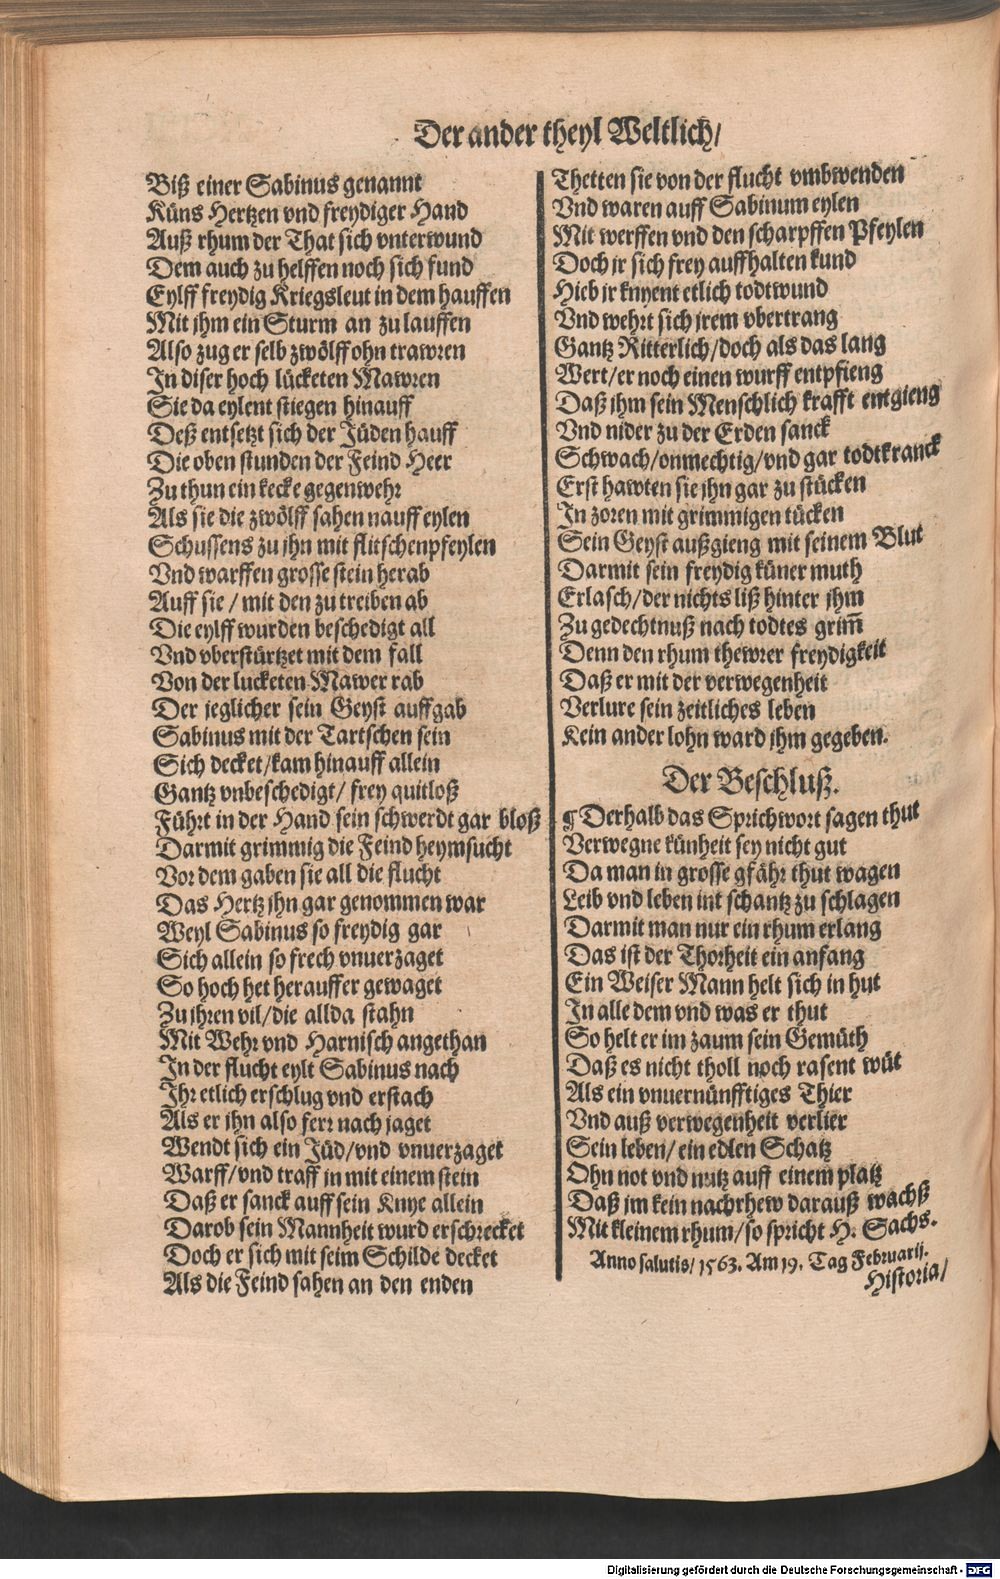 Der ander theyl Weltlich/
Biß einer Sabinus genannt
Küns Hertzen vnd freydiger Hand
Auß rhum der That sich vnterwund
Dem auch zu helffen noch sich fund
Eylff freydig Kriegsleut in dem hauffen
Mit jhm ein Sturm an zu lauffen
Also zug er selb zwölff ohn trawren
In diser hoch lücketen Mawren
Sie da eylent stiegen hinauff
Deß entsetzt sich der Jüden hauff
Die oben stunden der Feind Heer
Zu thun ein kecke gegenwehr
Als sie die zwölff sahen nauff eylen
Schussens zu jhn mit flitschenpfeylen
Vnd warffen grosse stein herab
Auff sie / mit den zu treiben ab
Die eylff wurden beschedigt all
Vnd vberstürtzet mit dem fall
Von der lucketen Mawer rab
Der jeglicher sein Geyst auffgab
Sabinus mit der Tartschen sein
Sich decket/kam hinauff allein
Gantz vnbeschedigt/ frey quitloß
Führt in der Hand sein schwerdt gar bloß
Darmit grimmig die Feind heymsucht
Vor dem gaben sie all die flucht
Das Hertz jhn gar genommen war
Weyl Sabinus so freydig gar
Sich allein so frech vnuerzaget
So hoch het herauffer gewaget
Zu jhren vil/die allda stahn
Mit Wehr vnd Harnisch angethan
In der flucht eylt Sabinus nach
Ihr etlich erschlug vnd erstach
Als er jhn also ferr nach jaget
Wendt sich ein Jüd/vnd vnuerzaget
Warff/vnd traff in mit einem stein
Daß er sanck auff sein Knye allein
Darob sein Mannheit wurd erschrecket
Doch er sich mit seim Schilde decket
Als die Feind sahen an den enden
Thetten sie von der flucht vmbwenden
Vnd waren auff Sabinum eylen
Mit werffen vnd den scharpffen Pfeylen
Doch jr sich frey auffhalten kund
Hieb jr knyent etlich todtwund
Vnd wehrt sich jrem vbertrang
Gantz Ritterlich/doch als das lang
Wert/er noch einen wurff entpfieng
Daß jhm sein Menschlich krafft entgieng
Vnd nider zu der Erden sanck
Schwach/onmechtig/vnd gar todtkranck
Erst hawten sie jhn gar zu stücken
In zoren mit grimmigen tücken
Sein Geyst außgieng mit seinem Blut
Darmit sein freydig küner muth
Erlasch/der nichts liß hinter jhm
Zu gedechtnuß nach todtes grim̄
Denn den rhum thewrer freydigkeit
Daß er mit der verwegenheit
Verlure sein zeitliches leben
Kein ander lohn ward jhm gegeben.
Der Beschluß.
¶ Derhalb das Sprichwort sagen thut
Verwegne künheit sey nicht gut
Da man in grosse gfähr thut wagen
Leib vnd leben int schantz zu schlagen
Darmit man nur ein rhum erlang
Das ist der Thorheit ein anfang
Ein Weiser Mann helt sich in hut
In alle dem vnd was er thut
So helt er im zaum sein Gemüth
Daß es nicht tholl noch rasent wüt
Als ein vnuernünfftiges Thier
Vnd auß verwegenheit verlier
Sein leben/ ein edlen Schatz
Ohn not vnd nutz auff einem platz
Daß jm kein nachrhew darauß wachß
Mit kleinem rhum/so spricht H. Sachs.
Anno salutis/ 1563. Am 19. Tag Februarij.
Historia/
Digitalisierung gefördert durch die Deutsche Forschungsgemeinschaft - DFG